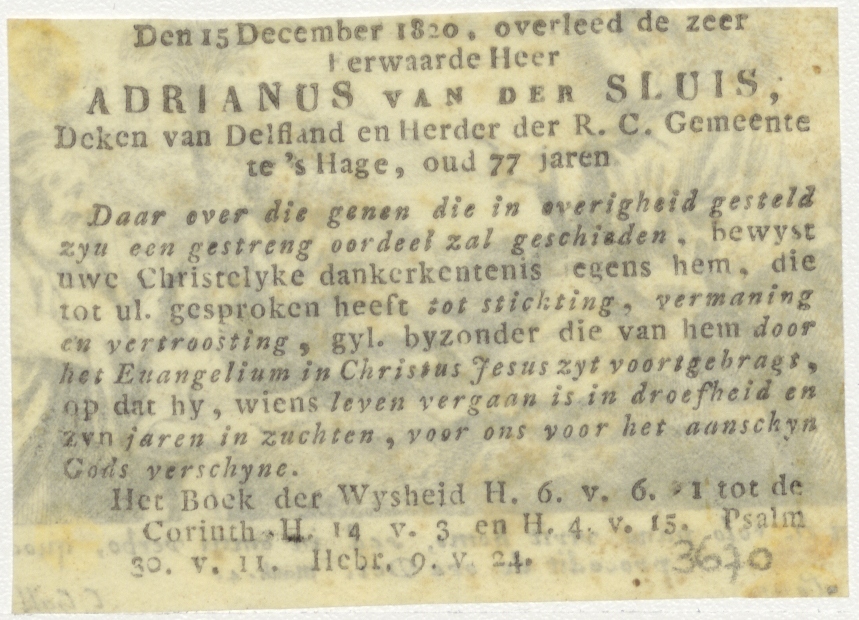 Den 15 December 1820, overleed de zeer
Eerwaarde Heer
ADRIANUS VAN DER SLUIS,
Deken van Delfland en Herder der R. C. Gemeente
te 's Hage, oud 77 jaren
Daar over die genen die in overigheid gesteld
zyn een gestreng oordeel zal geschieden, bewyst
uwe Christelyke dankerkentenis egens hem, die
tot ul. gesproken heeft tot stichting, vermaning
en vertroosting, gyl. byzonder die van hem door
het Euangelium in Christus Jesus zyt voortgebragt,
op dat hy, wiens leven vergaan is in droefheid en
zyn jaren in zuchten, voor ons voor het aanschyn
Gods verschyne.
Het Boek der Wysheid H. 6. v. 6. 1 tot de
Corinth. H. 14 v. 3 en H. 4. v. 15. Psalm
30. v. 11. Hebr. 9. v. 24.
3670